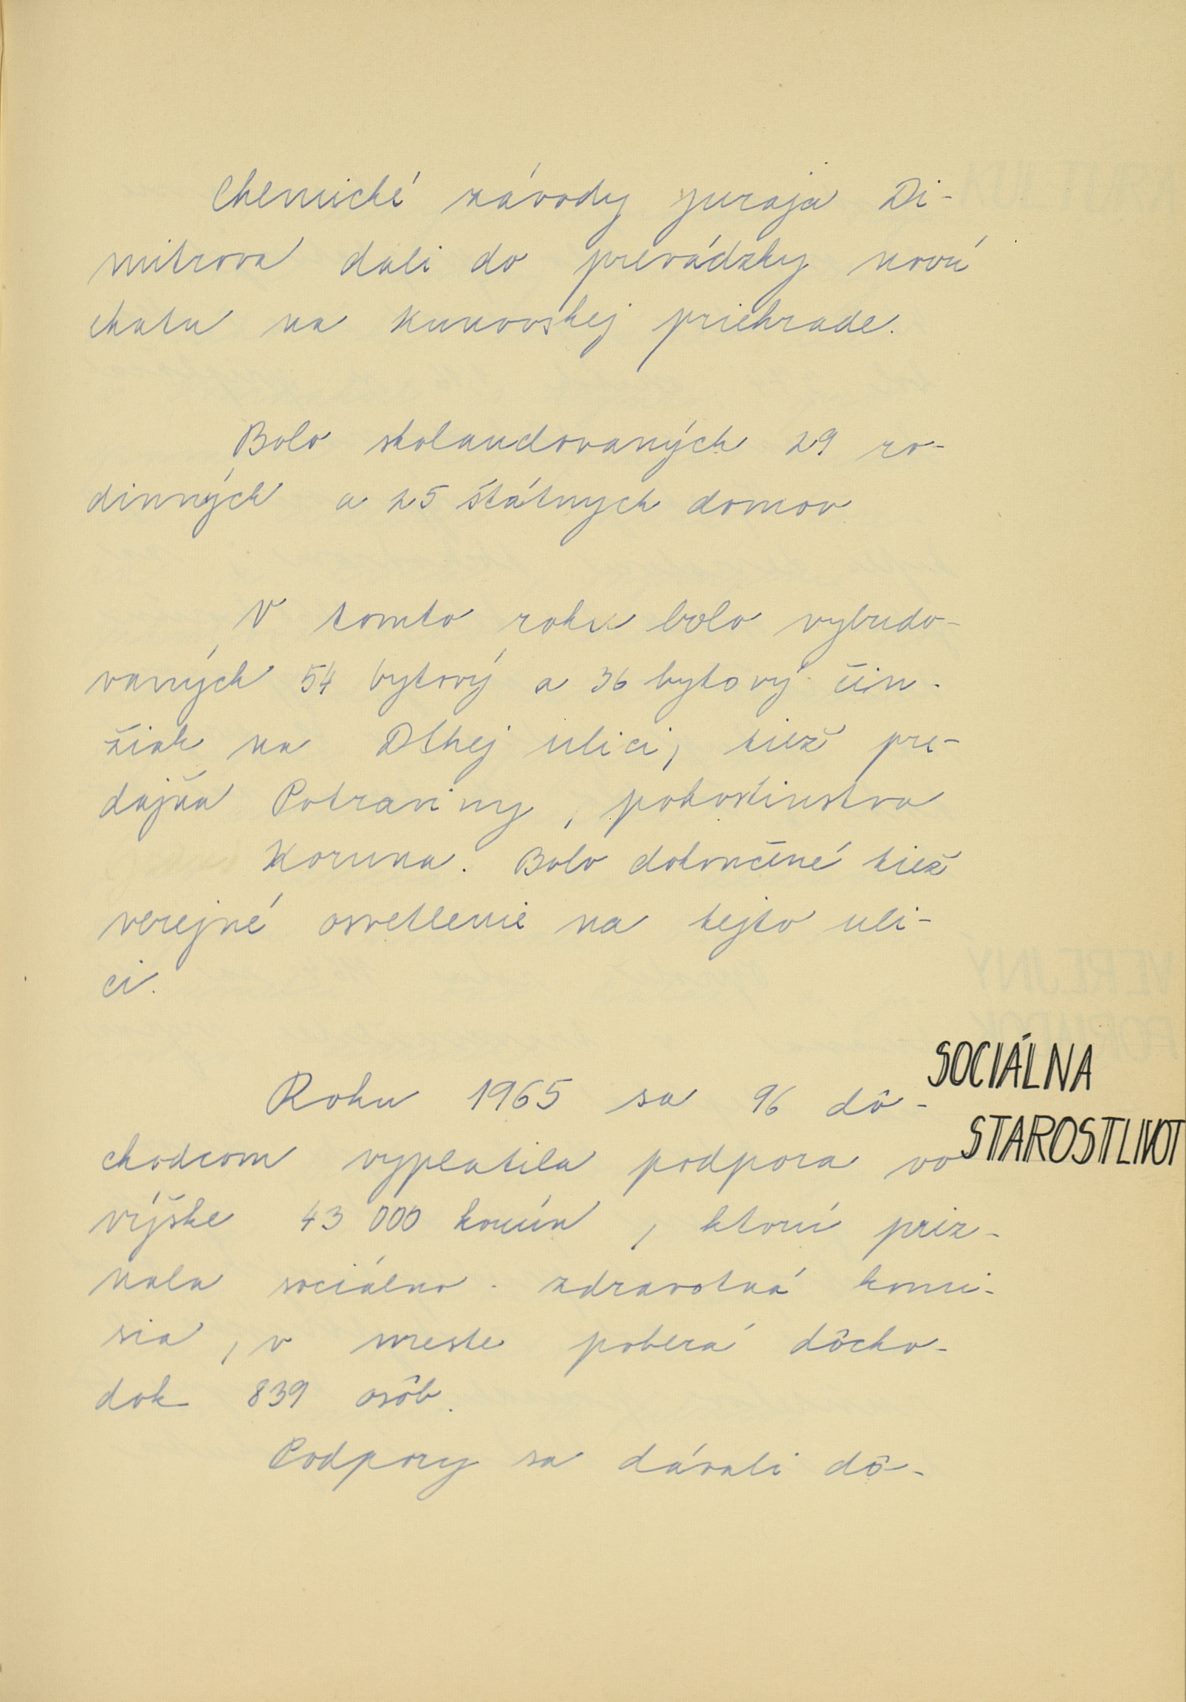 Chemické závody Juraja Di-
mitrova dali do prevádzky novú
chatu na Kunovskej priehrade.
Bolo skolaudovaných 29 ro-
dinných a 25 štátnych domov
V tomto roku bolo vybudo-
vaných 54 bytový a 36 bytový čin-
žiak na Dlhej ulici, tiež pre-
dajňa Potraviny, pohostinstvo
Koruna. Bolo dokončené tiež
verejné osvetlenie na tejto uli-
ci.
SOCIÁLNA
STAROSTLIVOT
Roku 1965 sa 96 dô-
chodcom vyplatila podpora vo
výške 43 000 korún, ktorú priz-
nala sociálno-zdravotná komi-
sia, v meste poberá dôcho-
dok 839 osôb.
Podpory sa dávali dô-